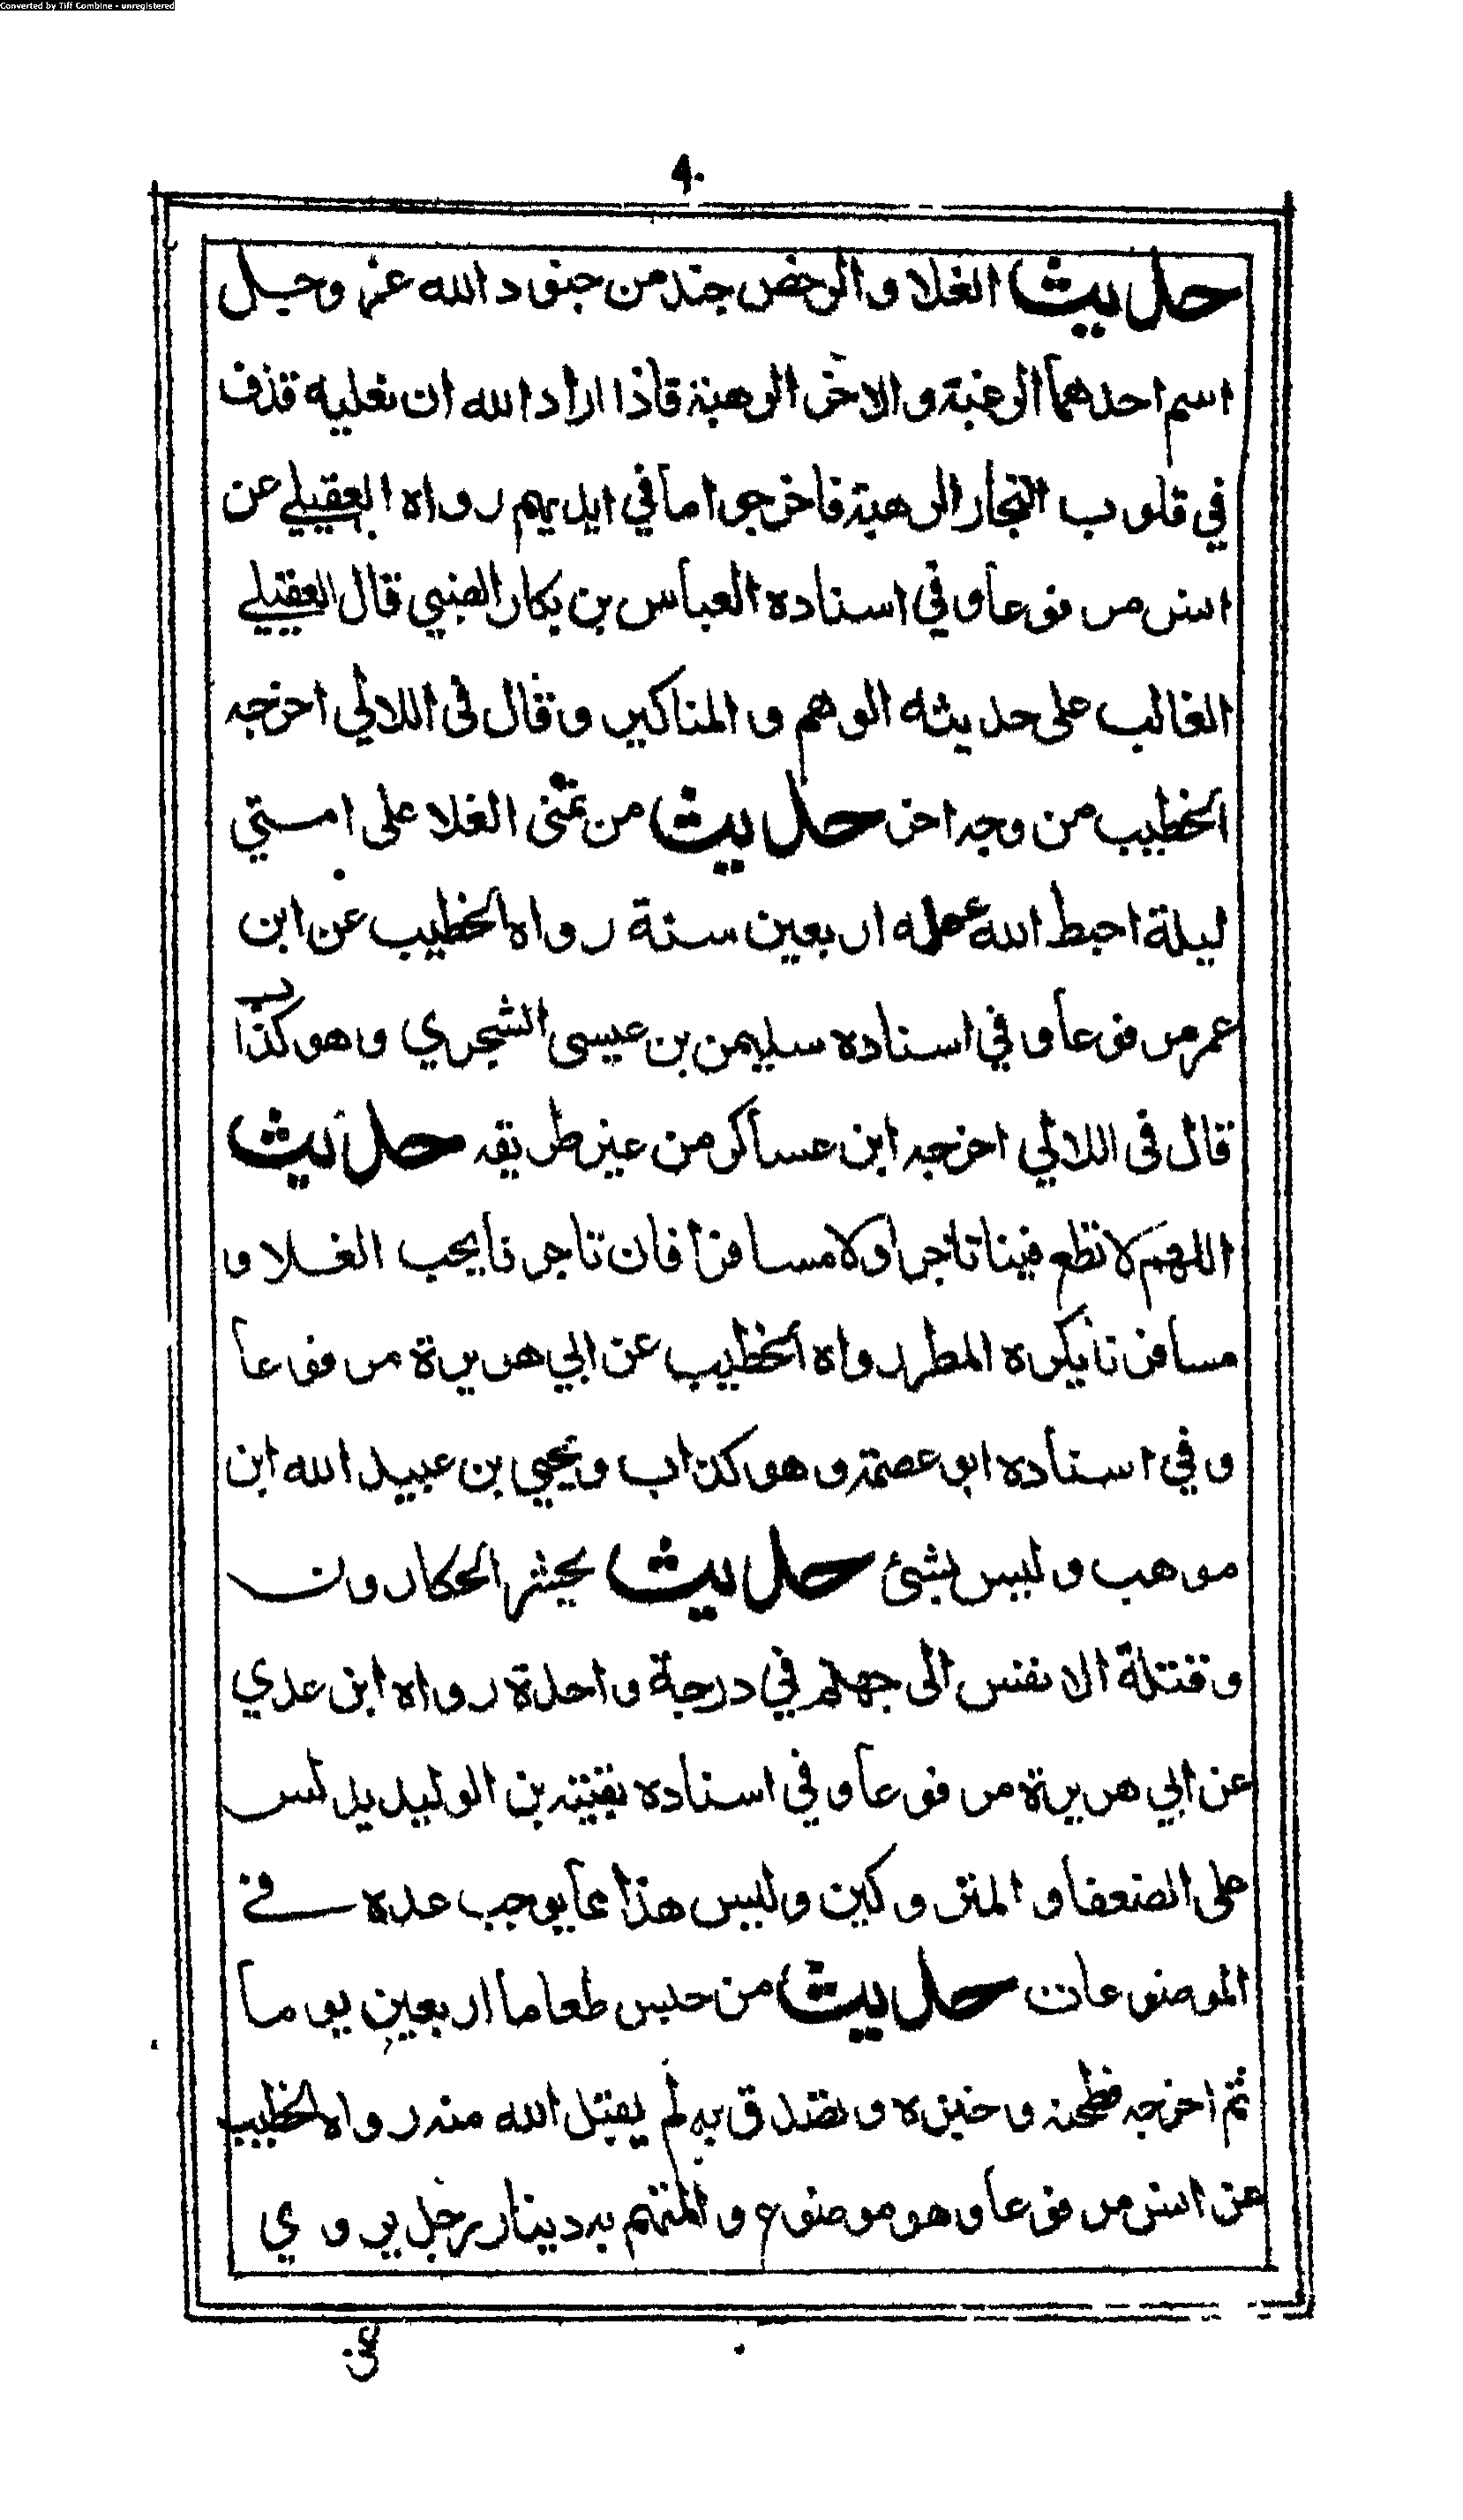 Converted by Tiff Combine - unregistered
٩٠
حديث الغلا والرخص جند من جنود الله عز وجل
اسم احدهما الرغبة والاخر الرهبة فاذا اراد الله ان يغليه قذف
في قلوب التجار الرهبة فاخرجوا ما في ايديهم رواه العقيلي عن
انس مرفوعا وفي اسناده العباس بن بكار الضبي قال العقيلي
الغالب على حديثه الوهم والمناكير وقال في اللالي اخرجه
الخطيب من وجه اخر حديث من تمنى الغلا على امتي
ليلة احبط الله عمله اربعين سنة رواه الخطيب عن ابن
عمر مرفوعا وفي اسناده سليمن بن عيسى الشجري وهو كذاب
قال في اللالي اخرجه ابن عساكر من غير طريقه حديث
اللهم لا تطع فينا تاجرا ولا مسافرا فان تاجرنا يحب الغلا و
مسافرنا يكره المطر رواه الخطيب عن ابي هريرة مرفوعا
وفي اسناده ابو عصمة وهو كذاب ويحيي بن عبيد الله ابن
موهب وليس بشئ حديث يحشر الحكارون
وقتلة الانفس الى جهنم في درجة واحدة رواه ابن عدي
عن ابي هريرة مرفوعا وفي اسناده بقية بن الوليد يدلس
على الضعفا والمتروكين وليس هذا مما يوجب عده في
الموضوعات حديث من حبس طعاما اربعين يوما
ثم اخرجه فطحنه وخبزه وتصدق به لم يقبل الله منه رواه الخطيب
عن انس مرفوعا وهو موضوع والمتهم به دينار رجل يروي